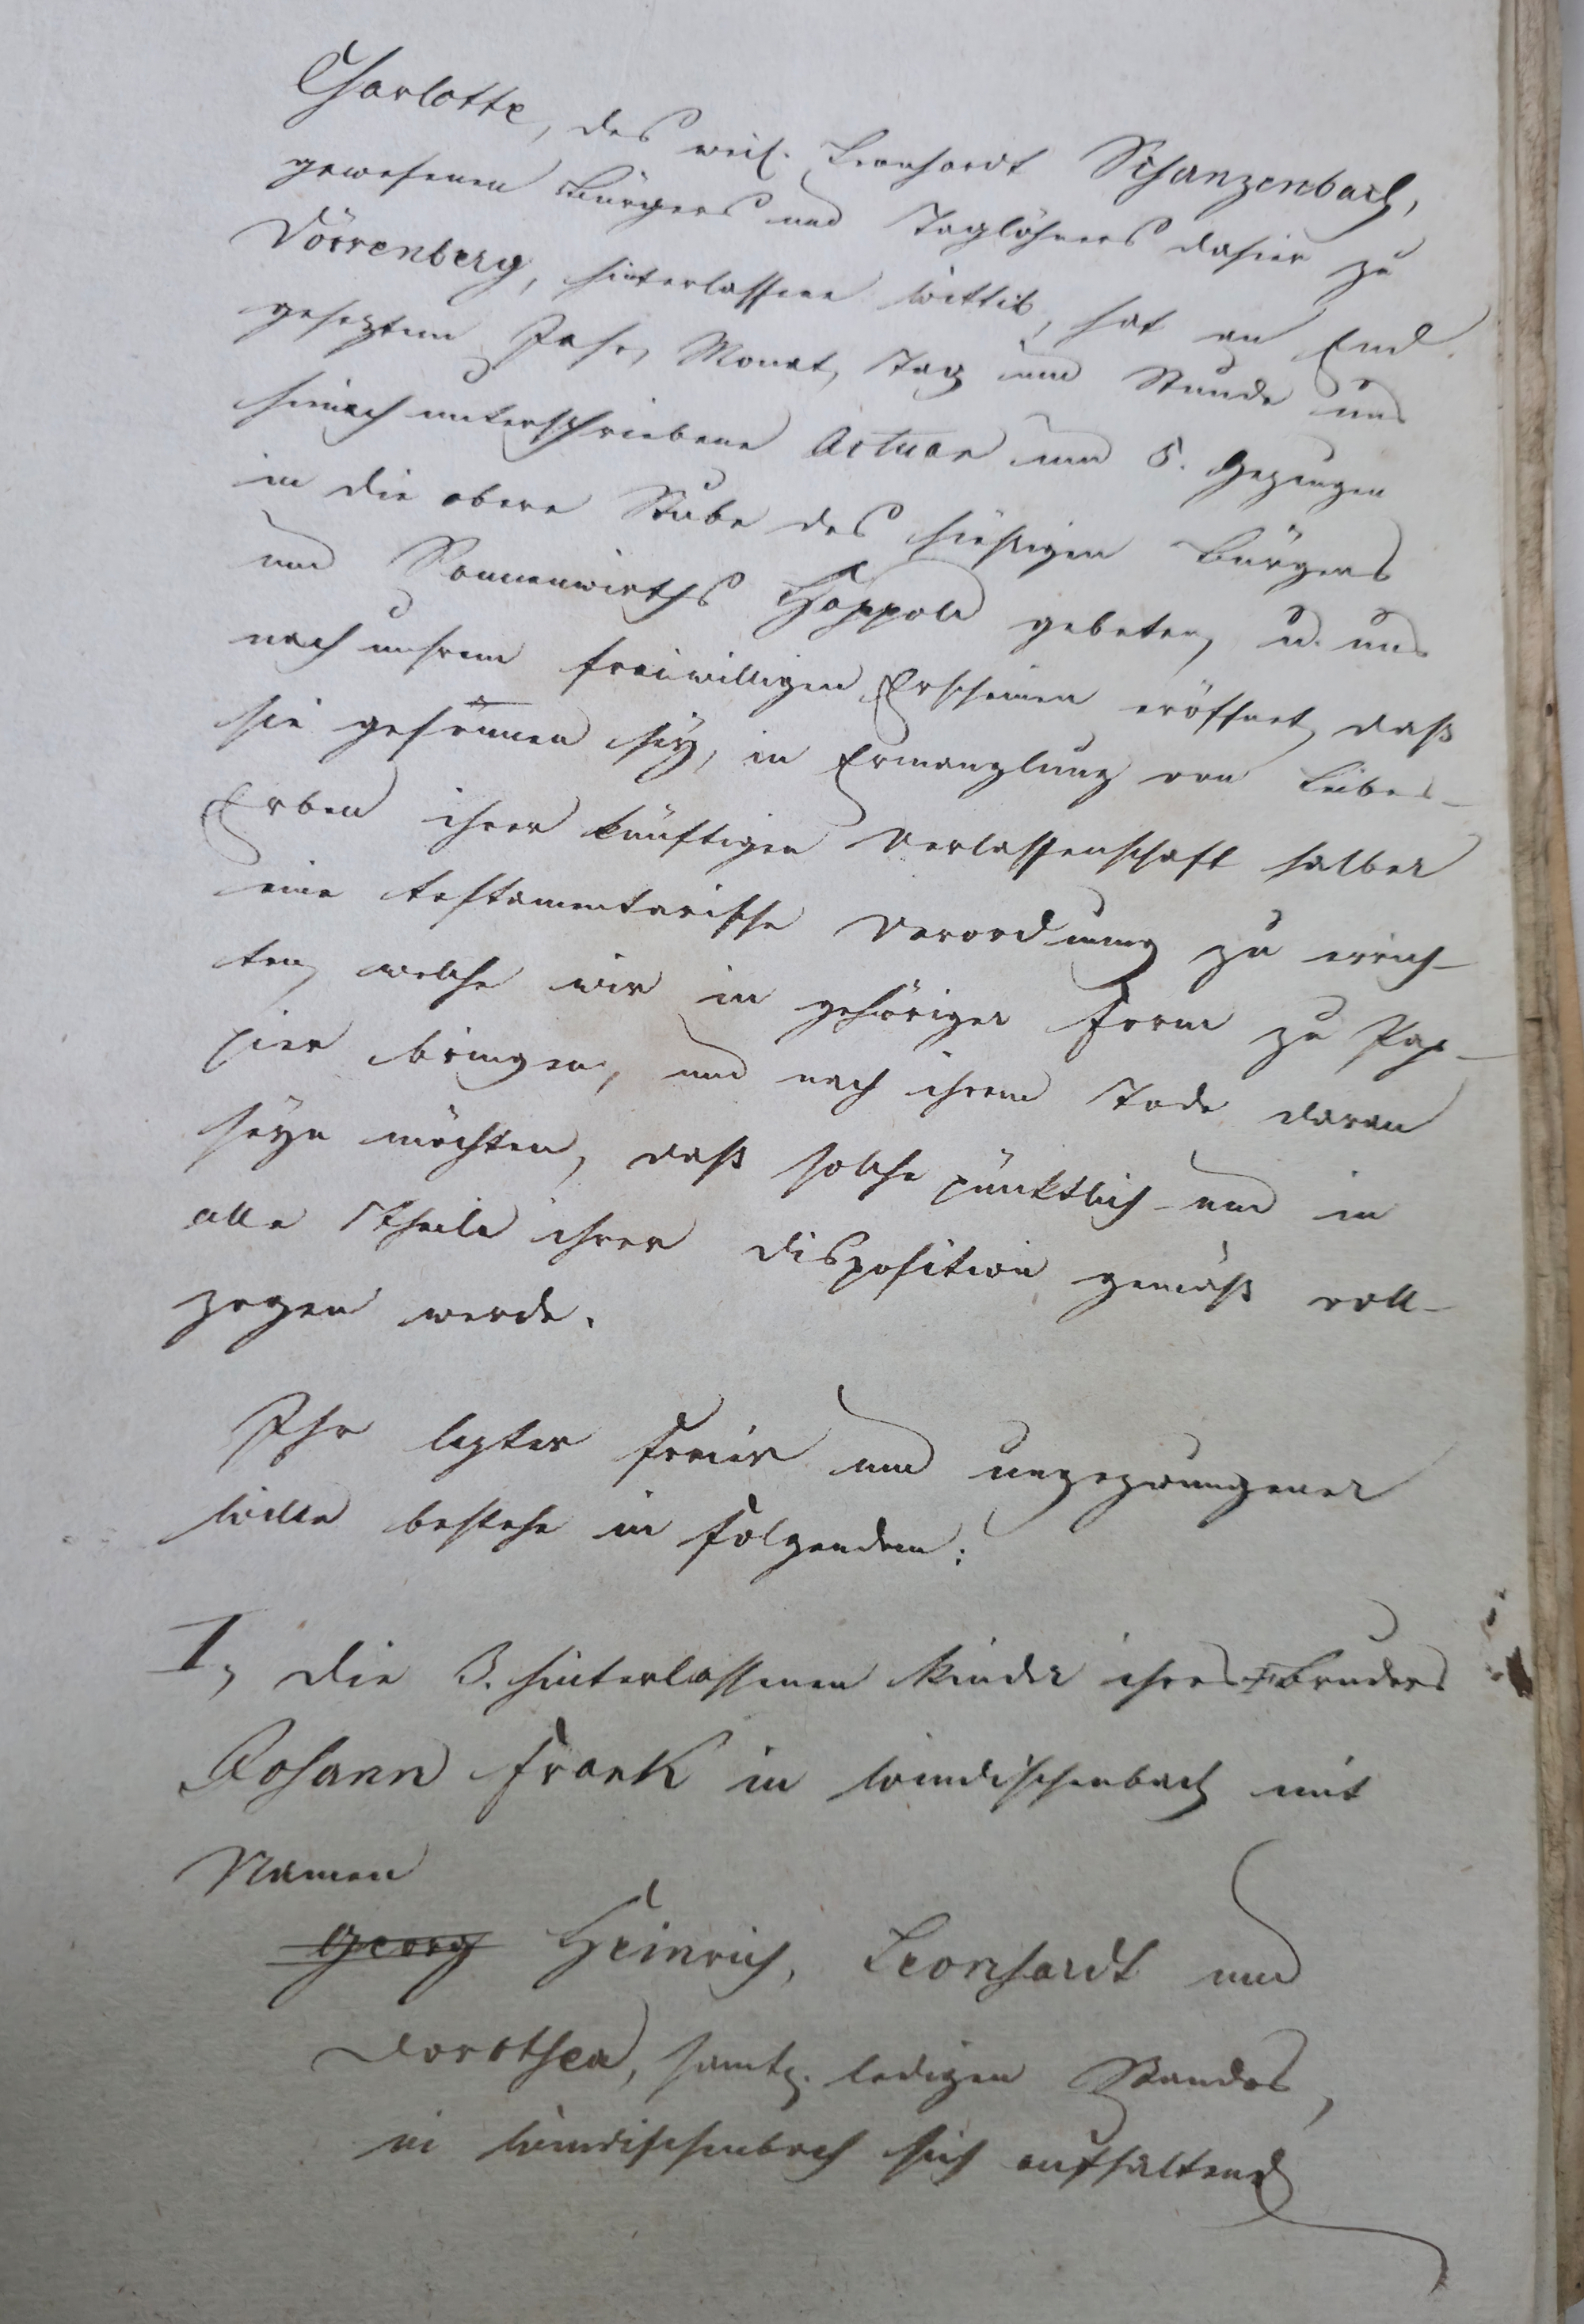 Charlotte, des weil. Leonhardt Schanzenbach,
gewesenen Bürgers und Taglöhners dahier zu
Dörrenberg, hinterlassene Wittib, hat an End
gesetztem Jahr, Monat, Tag und Stunde uns
hienach unterschriebene Actuar und 5. Gezeugen
in die obere Stube des hiesigen Bürgers
und Sonnenwirths Happold gebeten, u. uns
nach unsrem freiwilligen Erscheinen eröffnet, daß
sie gesonnen sey, in Ermanglung von Leibes-
Erben ihrer künftigen Verlassenschaft halber
eine testamentarische Verordnung zu errich-
ten, welche wir in gehöriger Form zu Pap-
pier bringen, und nach ihrem Tode daran
seyn möchten, daß solche pünktlich und in
alle Theile ihrer Disposition gemäß voll-
zogen werde.
Ihr lezter freier und ungezwungener
Wille bestehe in folgendem:
I, Die 3. hinterlassenen Kinder ihres Bruders
Johann Frank in Windischenbach mit
Namen
Georg Heinrich, Leonhardt und
Dorothea, samtl. ledigen Standes,
in Windischenbach sich aufhaltend